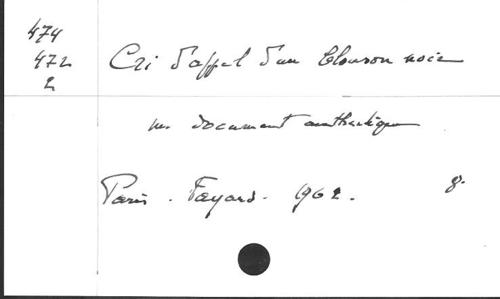 474
472
2
Cri d'appel d'un blouson noir
un document authentique
Paris. Fayard. 1962. 8.